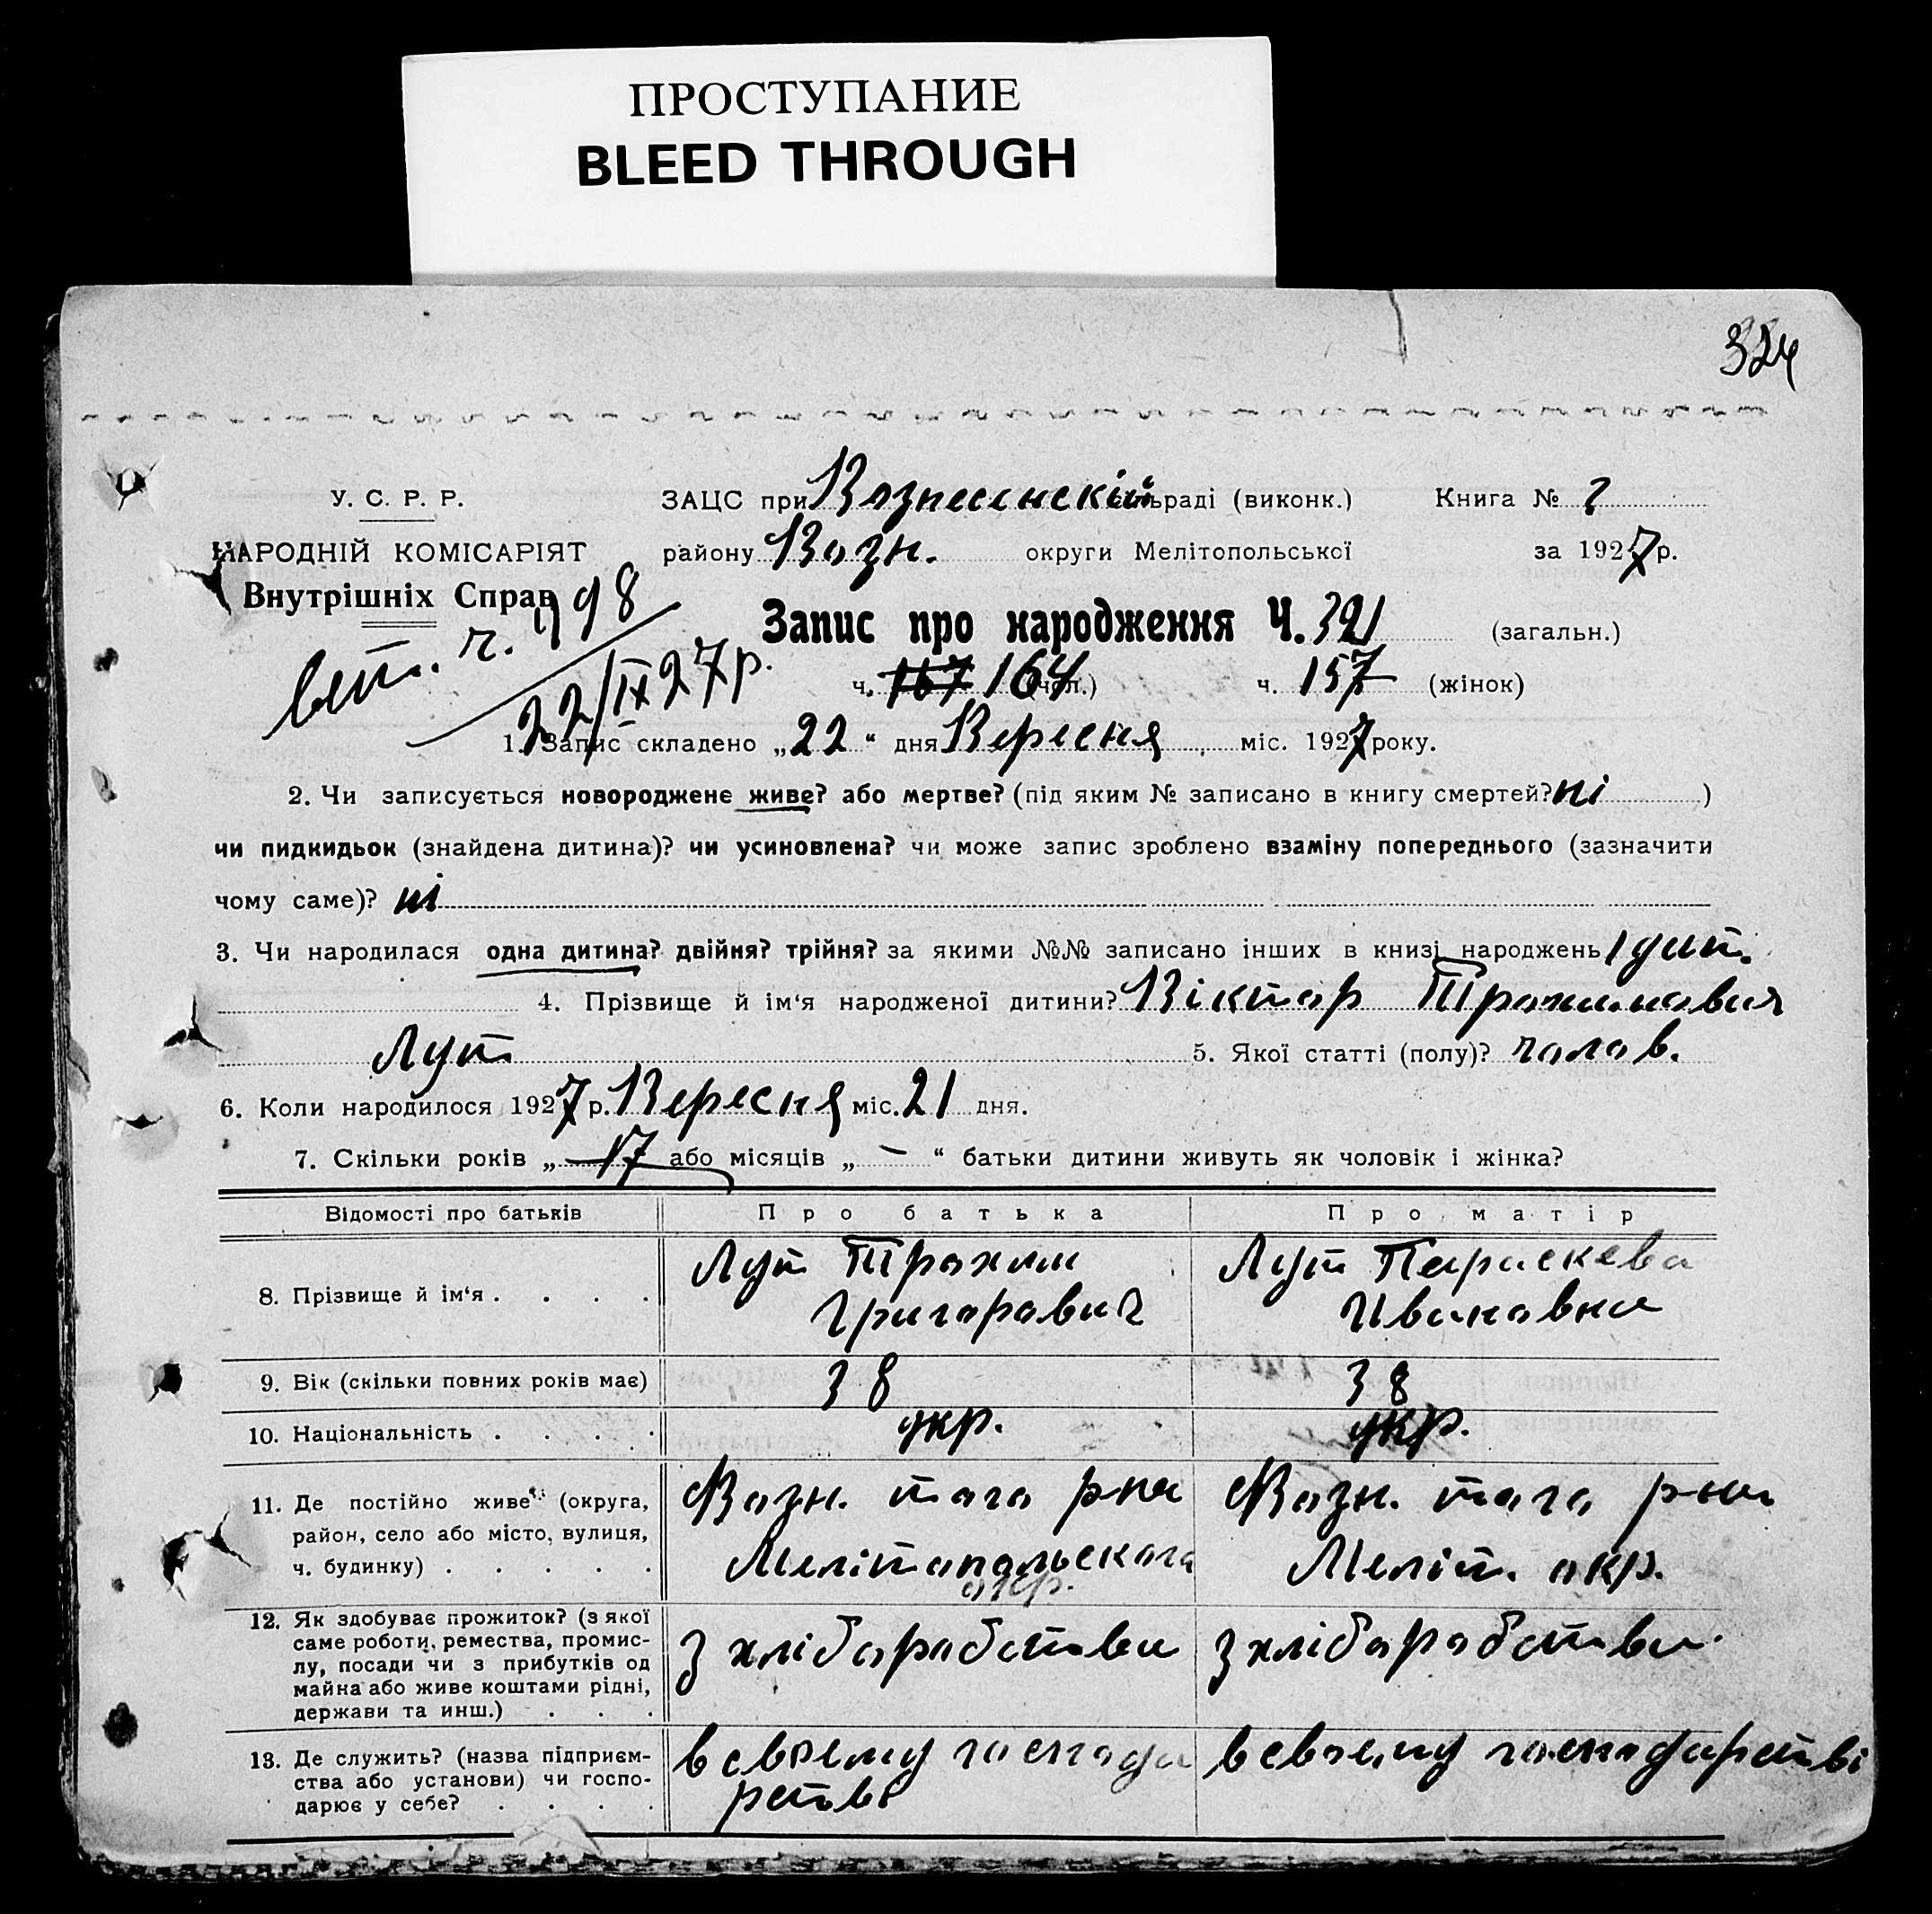 ПРОСТУПАНИЕ
BLEED THROUGH
324
У. С. Р. Р.
НАРОДНІЙ КОМІСАРІЯТ
Внутрішніх Справ
ЗАЦС при Вознесенскій сільраді (виконк.) Книга № 2
району Возн. округи Мелітопольської за 1927 р.
вит. ч. 798
22/IX 27 р.
Запис про народження Ч. 321 (загальн.)
ч. 167 164 (чол.) ч. 157 (жінок)
1. Запис складено „22“ дня Вересня міс. 1927 року.
2. Чи записується новороджене живе? або мертве? (під яким № записано в книгу смертей? ні )
чи пидкидьок (знайдена дитина)? чи усиновлена? чи може запис зроблено взаміну попереднього (зазначити
чому саме)? ні
3. Чи народилася одна дитина? двійня? трійня? за якими №№ записано інших в книзі народжень 1 дит.
4. Прізвище й ім‘я народженої дитини? Віктор Трохимович
Лут 5. Якої статті (полу)? чолов.
6. Коли народилося 1927 р. Вересня міс. 21 дня.
7. Скільки років „ 17 або місяців „ — “ батьки дитини живуть як чоловік і жінка?
Відомості про батьків Про батька Про матір
8. Прізвище й ім‘я . . . . Лут Трохим Григорович Лут Параскева Ивановна
9. Вік (скільки повних років має) 38 38
10. Національність . . . . укр. укр.
11. Де постійно живе (округа,
район, село або місто, вулиця,
ч. будинку) . . . . .
Возн. того рна
Мелітопольского
окр.
Возн. того рна
Меліт. окр.
12. Як здобуває прожиток? (з якої
саме роботи, ремества, промис-
лу, посади чи з прибутків од
майна або живе коштами рідні,
держави та инш.) . . .
з хліборобства
з хліборобства
13. Де служить? (назва підприєм-
ства або установи) чи госпо-
дарює у себе? . . . .
в своєму господа
рстві
в своєму господарстві